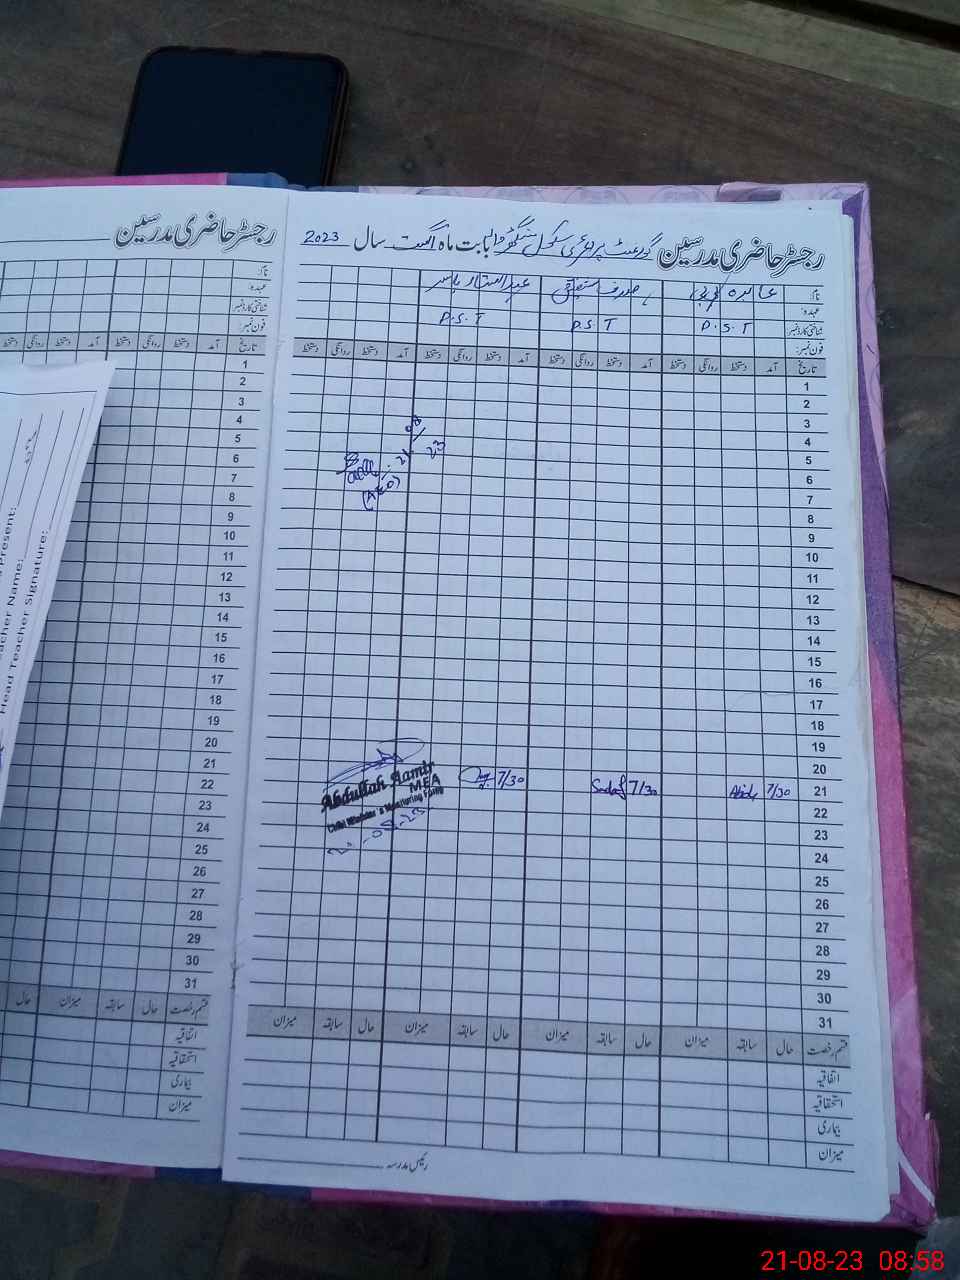 رجسٹر حاضری مدرسین گورنمنٹ پرائمری سکول بابت ماہ اگست سال 2023
نام:
عہدہ:
شناختی کارڈ نمبر
فون نمبر:
P.S.T P.S.T P.S.T
تاریخ آمد دستخط روانگی دستخط آمد دستخط روانگی دستخط آمد دستخط روانگی دستخط آمد دستخط روانگی دستخط
1
2
3
4
5
6
7
8
9
10
11
12
13
14
15
16
17
18
19
20
21 7/30 Sadaf 7/30 7/30
22
23
24
25
26
27
28
29
30
31
21-08-23
(AEO)
Abdullah Aamir
MEA
Chief Minister's Monitoring Force
21-08-23
قسم رخصت حال سابقہ میزان حال سابقہ میزان حال سابقہ میزان حال سابقہ میزان
اتفاقیہ
استحقاقیہ
بیماری
میزان
رئیس مدرسہ
رجسٹر حاضری مدرسین
نام:
عہدہ:
شناختی کارڈ نمبر
فون نمبر:
تاریخ آمد دستخط روانگی دستخط آمد دستخط روانگی دستخط
1
2
3
4
5
6
7
8
9
10
11
12
13
14
15
16
17
18
19
20
21
22
23
24
25
26
27
28
29
30
31
قسم رخصت حال سابقہ میزان حال
اتفاقیہ
استحقاقیہ
بیماری
میزان
Present:
Teacher Name:
Head Teacher Signature:
21-08-23 08:58